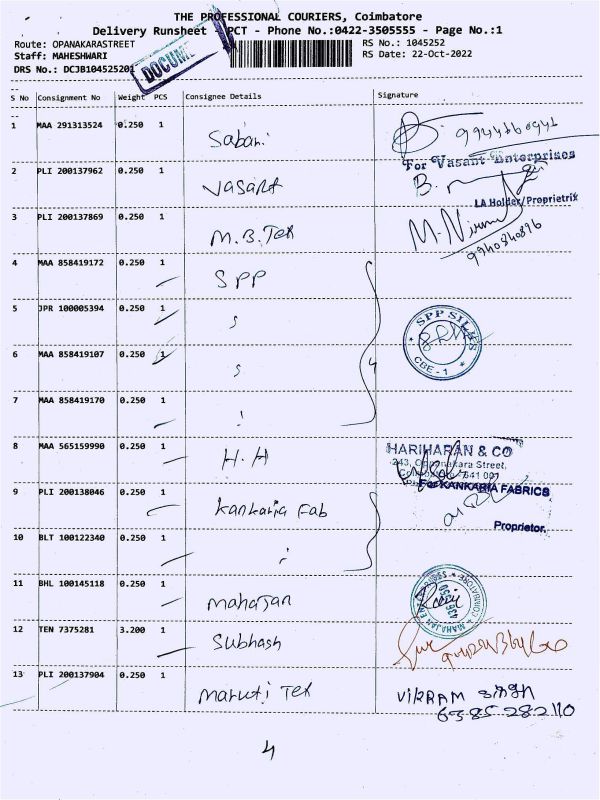 THE PROFESSIONAL COURIERS, Coimbatore
Delivery Runsheet - PCT - Phone No.:0422-3505555 - Page No.:1
Route: OPANAKARASTREET
RS No.: 1045252
Staff: MAHESHWARI
RS Date: 22-Oct-2022
DRS No.: DCJB104525201
DOCUME
S No Consignment No Weight PCS Consignee Details Signature
1 MAA 291313524 0.250 1 Sabari
2 PLI 200137962 0.250 1 Vasant
For Vasant Enterprises
LA Holder/Proprietrix
3 PLI 200137869 0.250 1 M.B.Tex
9940840896
4 MAA 858419172 0.250 1 SPP
5 JPR 100005394 0.250 1
SPP SILKS
CBE - 1
6 MAA 858419107 0.250 1
4
7 MAA 858419170 0.250 1
8 MAA 565159990 0.250 1 H.H
HARIHARAN & CO
243, Oppanakara Street,
641 001
For KANKARIA FABRICS
9 PLI 200138046 0.250 1 Kankaria Fab
Proprietor.
10 BLT 100122340 0.250 1
11 BHL 100145118 0.250 1 Mahajan
12 TEN 7375281 3.200 1 Subhash
13 PLI 200137904 0.250 1 Maruti Tex VIKRAM
6385282110
4